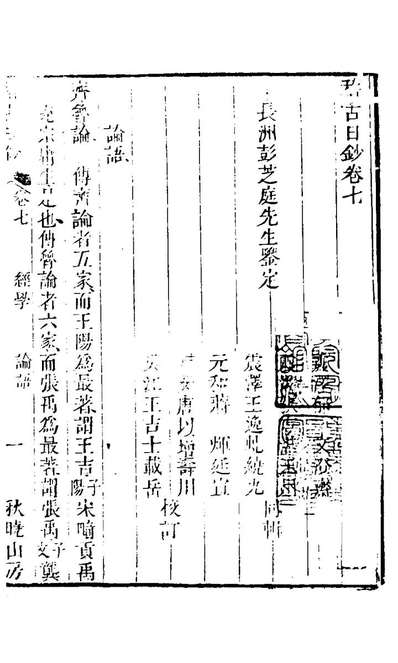 稽古日鈔卷七
長洲彭芝庭先生鑒定
震澤王逸虬繞九
同輯
元和蔣煇廷宣
安唐以增壽川
吳江王吉士載岳
校訂
論語
齊魯論 傳齊論者五家而王陽為最著謂王吉子陽宋畸貢禹
充宗庸生是也傳魯論者六家而張禹為最著謂張禹子文龔
卷七 經學 論語 一 秋曉山房